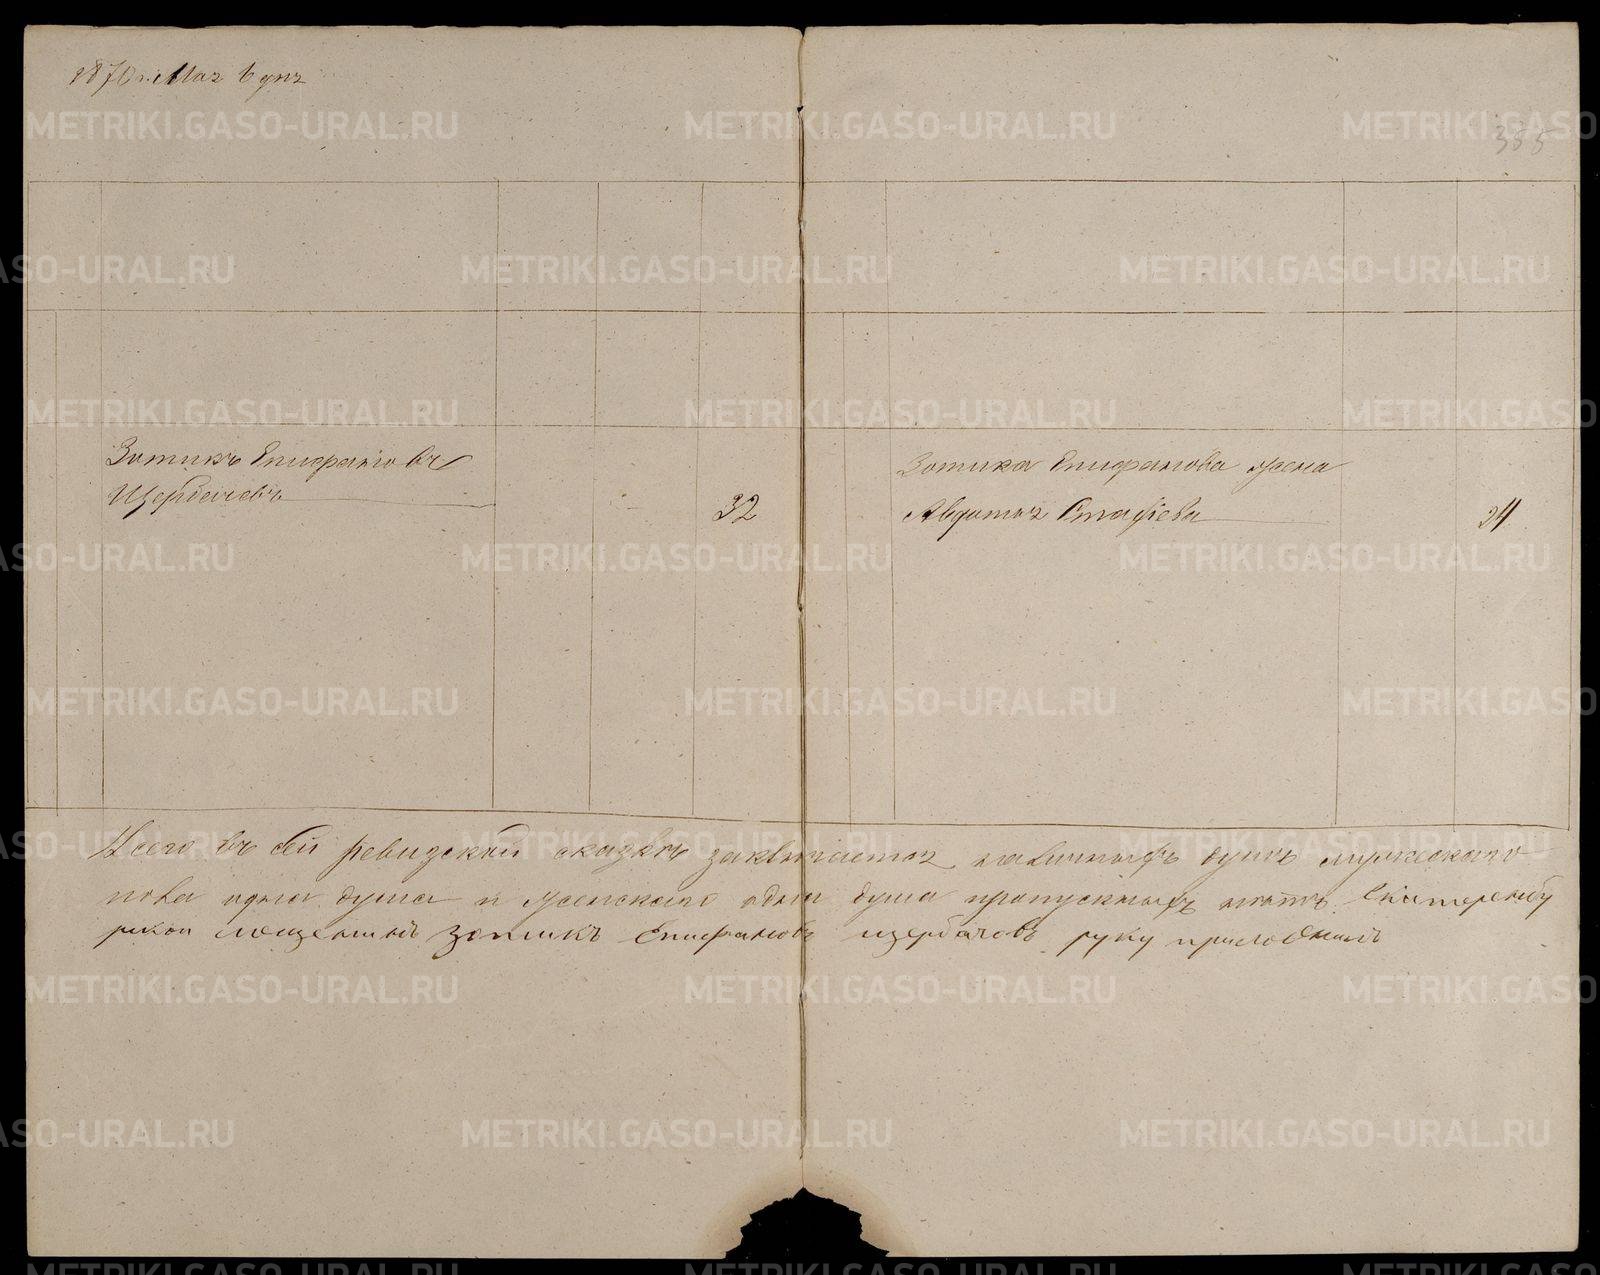 1870 г. Мая 6 дня
385
Зотикъ Епифановъ
Щербачевъ
32
Зотика Епифанова жена
Авдотья Стафіева
24
Всего въ сей ревизской сказкѣ заключается наличныхъ душъ мужескаго
пола одна душа и женскаго одна душа пропускныхъ нѣтъ Екатеренбу
рской мещенинъ зотикъ Епифановъ щербачовъ руку приложилъ
METRIKI.GASO-URAL.RU